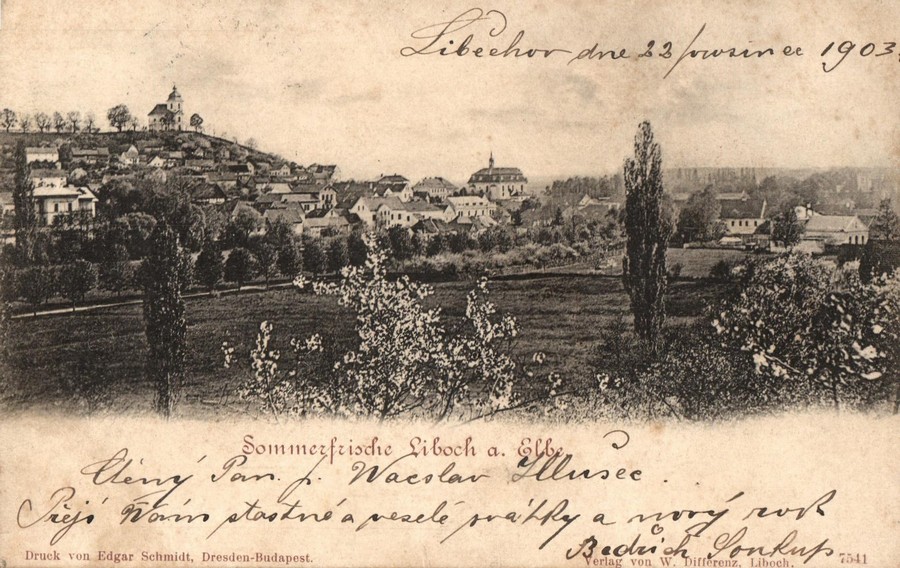 Liběchov dne 22/prosince 1903.
Sommerfrische Liboch a. Elbe
Ctěný Pan. p. Wacslav Hlusec.
Přejí Wám stastné a veselé svátky a nový rok
Bedřich Soukup
Druck von Edgar Schmidt, Dresden-Budapest.
Verlag von W. Differenz, Liboch. 7541